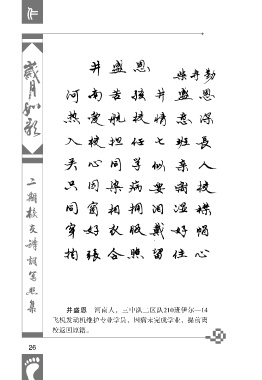 岁月如歌
二期校友诗词写照集
井盛恩
柴寿勤
河南苦孩井盛恩
热爱航校情意深
入校担任七班长
关心同学似亲人
只因染病要离校
同窗相拥泪湿襟
穿好衣服戴好帽
拍张合照留住心
井盛恩 河南人,三中队二区队210班伊尔—14
飞机发动机维护专业学员,因病未完成学业,提前离
校返回原籍。
26